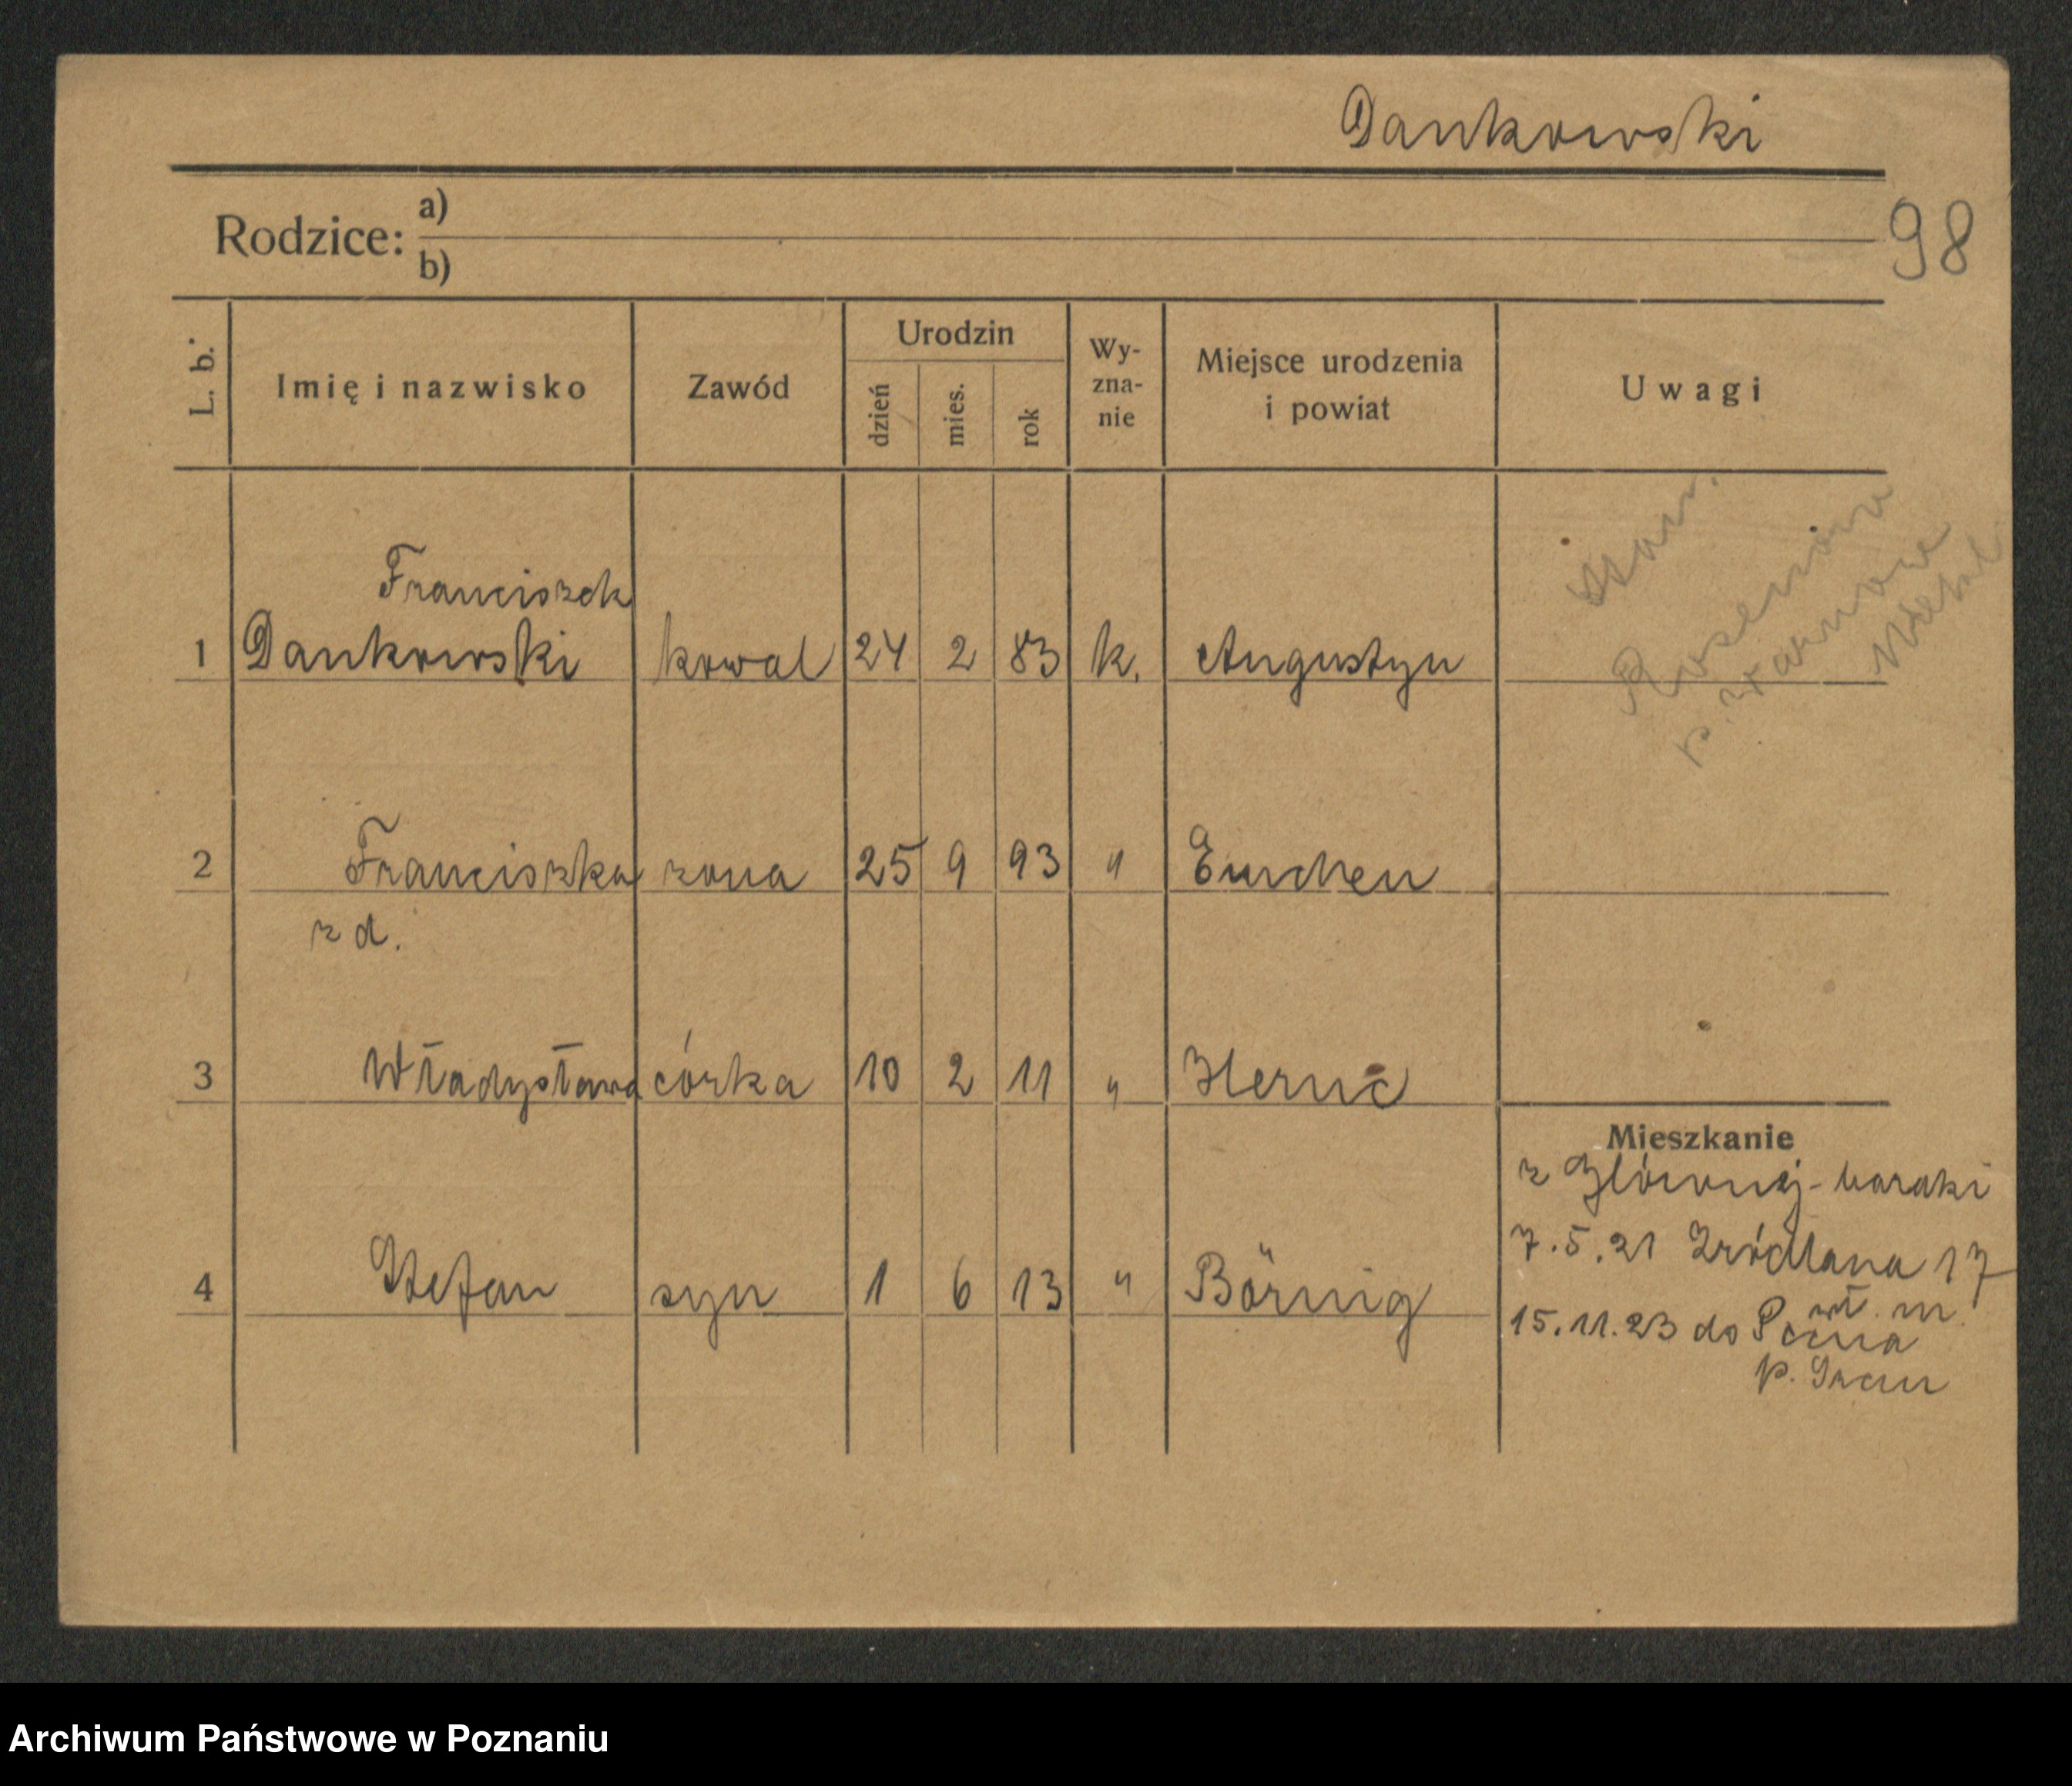 Dankowski
98
Rodzice: a)
b)
L. b. Imię i nazwisko Zawód Urodzin dzień mies. rok Wy-zna-nie Miejsce urodzenia i powiat Uwagi
Franciszek
1 Dankowski kowal 24 2 83 k. Augustyn
2 Franciszka zona 25 9 93 " Emchen
z d.
3 Władysława córka 10 2 11 " Herne
Mieszkanie
z Głównej - baraki
7.5.21 Zródlana 17
wł. m.
4 Stefan syn 1 6 13 " Börnig
15.11.23 do
p.
Archiwum Państwowe w Poznaniu